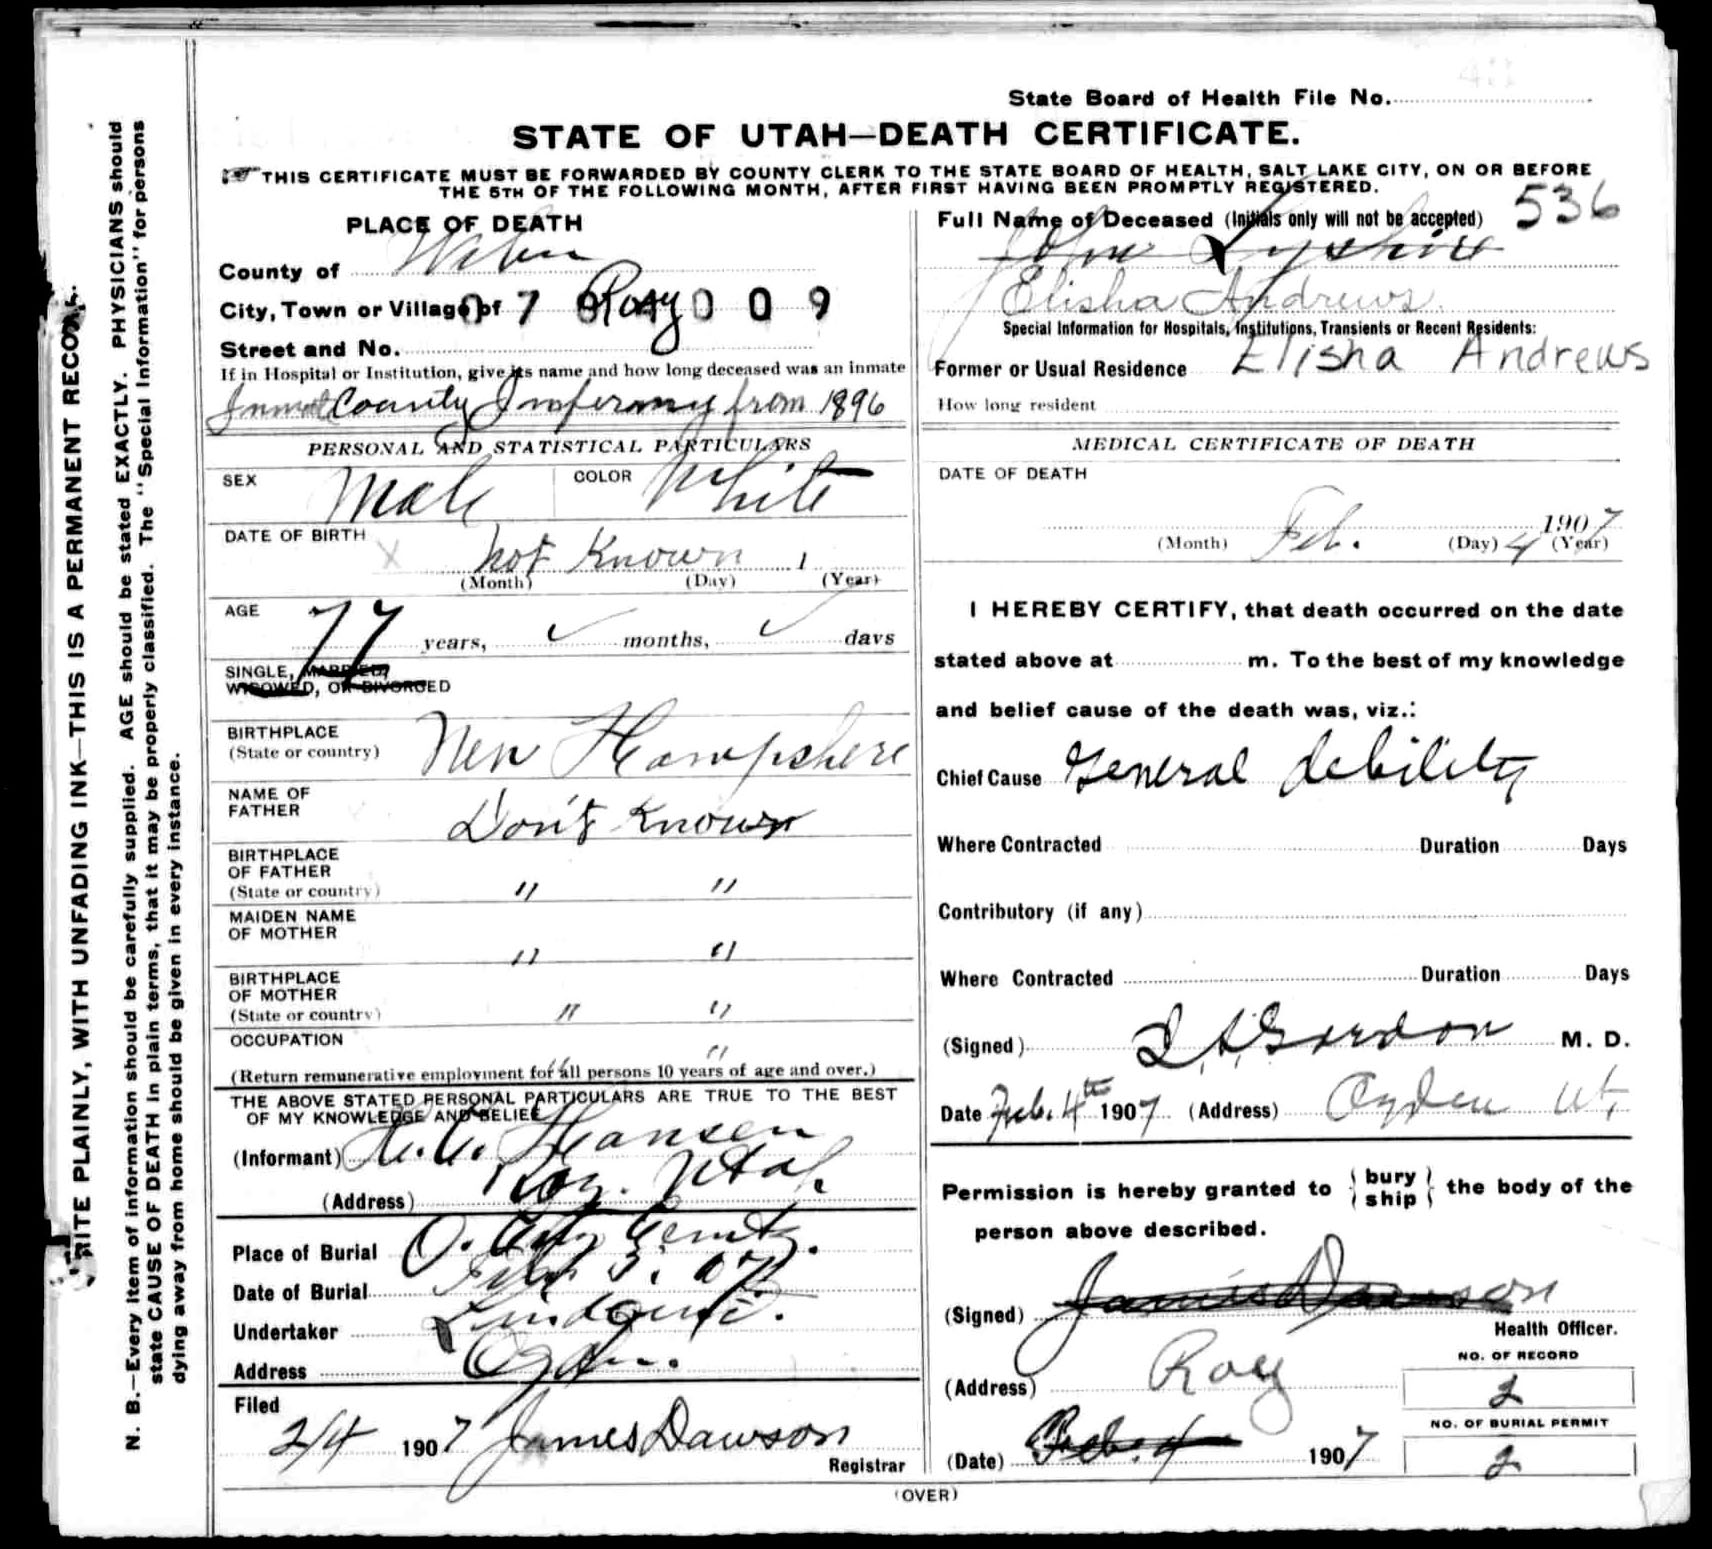 State Board of Health File No.
STATE OF UTAH—DEATH CERTIFICATE.
THIS CERTIFICATE MUST BE FORWARDED BY COUNTY CLERK TO THE STATE BOARD OF HEALTH, SALT LAKE CITY, ON OR BEFORE
THE 5TH OF THE FOLLOWING MONTH, AFTER FIRST HAVING BEEN PROMPTLY REGISTERED.
PLACE OF DEATH
County of Weber
City, Town or Village of Roy
Street and No.
If in Hospital or Institution, give its name and how long deceased was an inmate
Inmate County Infirmry from 1896
PERSONAL AND STATISTICAL PARTICULARS
SEX Male COLOR White
DATE OF BIRTH X not Known 1
(Month) (Day) (Year)
AGE 77 years, ✓ months, ✓ days
SINGLE, MARRIED,
WIDOWED, OR DIVORCED
BIRTHPLACE
(State or country) New Hampshere
NAME OF
FATHER Don't Known
BIRTHPLACE
OF FATHER
(State or country) " "
MAIDEN NAME
OF MOTHER " "
BIRTHPLACE
OF MOTHER
(State or country) " "
OCCUPATION " "
(Return remunerative employment for all persons 10 years of age and over.)
THE ABOVE STATED PERSONAL PARTICULARS ARE TRUE TO THE BEST
OF MY KNOWLEDGE AND BELIEF
(Informant) Hansen
(Address) Roy. Utah
Place of Burial O. City Cemty.
Date of Burial Feb 5. 07.
Undertaker Lindquist.
Address Ogden.
Filed
2/4 1907 James Dawson
Registrar
Full Name of Deceased (Initials only will not be accepted) 536
John
Elisha Andrews.
Special Information for Hospitals, Institutions, Transients or Recent Residents:
Former or Usual Residence Elisha Andrews
How long resident
MEDICAL CERTIFICATE OF DEATH
DATE OF DEATH
Feb. 4 1907
(Month) (Day) (Year)
I HEREBY CERTIFY, that death occurred on the date
stated above at m. To the best of my knowledge
and belief cause of the death was, viz.:
Chief Cause General debility
Where Contracted Duration Days
Contributory (if any)
Where Contracted Duration Days
(Signed) Gordon M. D.
Date Feb. 4th 1907 (Address) Ogden Ut,
Permission is hereby granted to { bury
ship } the body of the
person above described.
(Signed) James Dawson
Health Officer.
(Address) Roy
NO. OF RECORD
2
NO. OF BURIAL PERMIT
2
(Date) Feb. 4 1907
(OVER)
WRITE PLAINLY, WITH UNFADING INK—THIS IS A PERMANENT RECORD.
N. B.—Every item of information should be carefully supplied. AGE should be stated EXACTLY. PHYSICIANS should
state CAUSE OF DEATH in plain terms, that it may be properly classified. The "Special Information" for persons
dying away from home should be given in every instance.